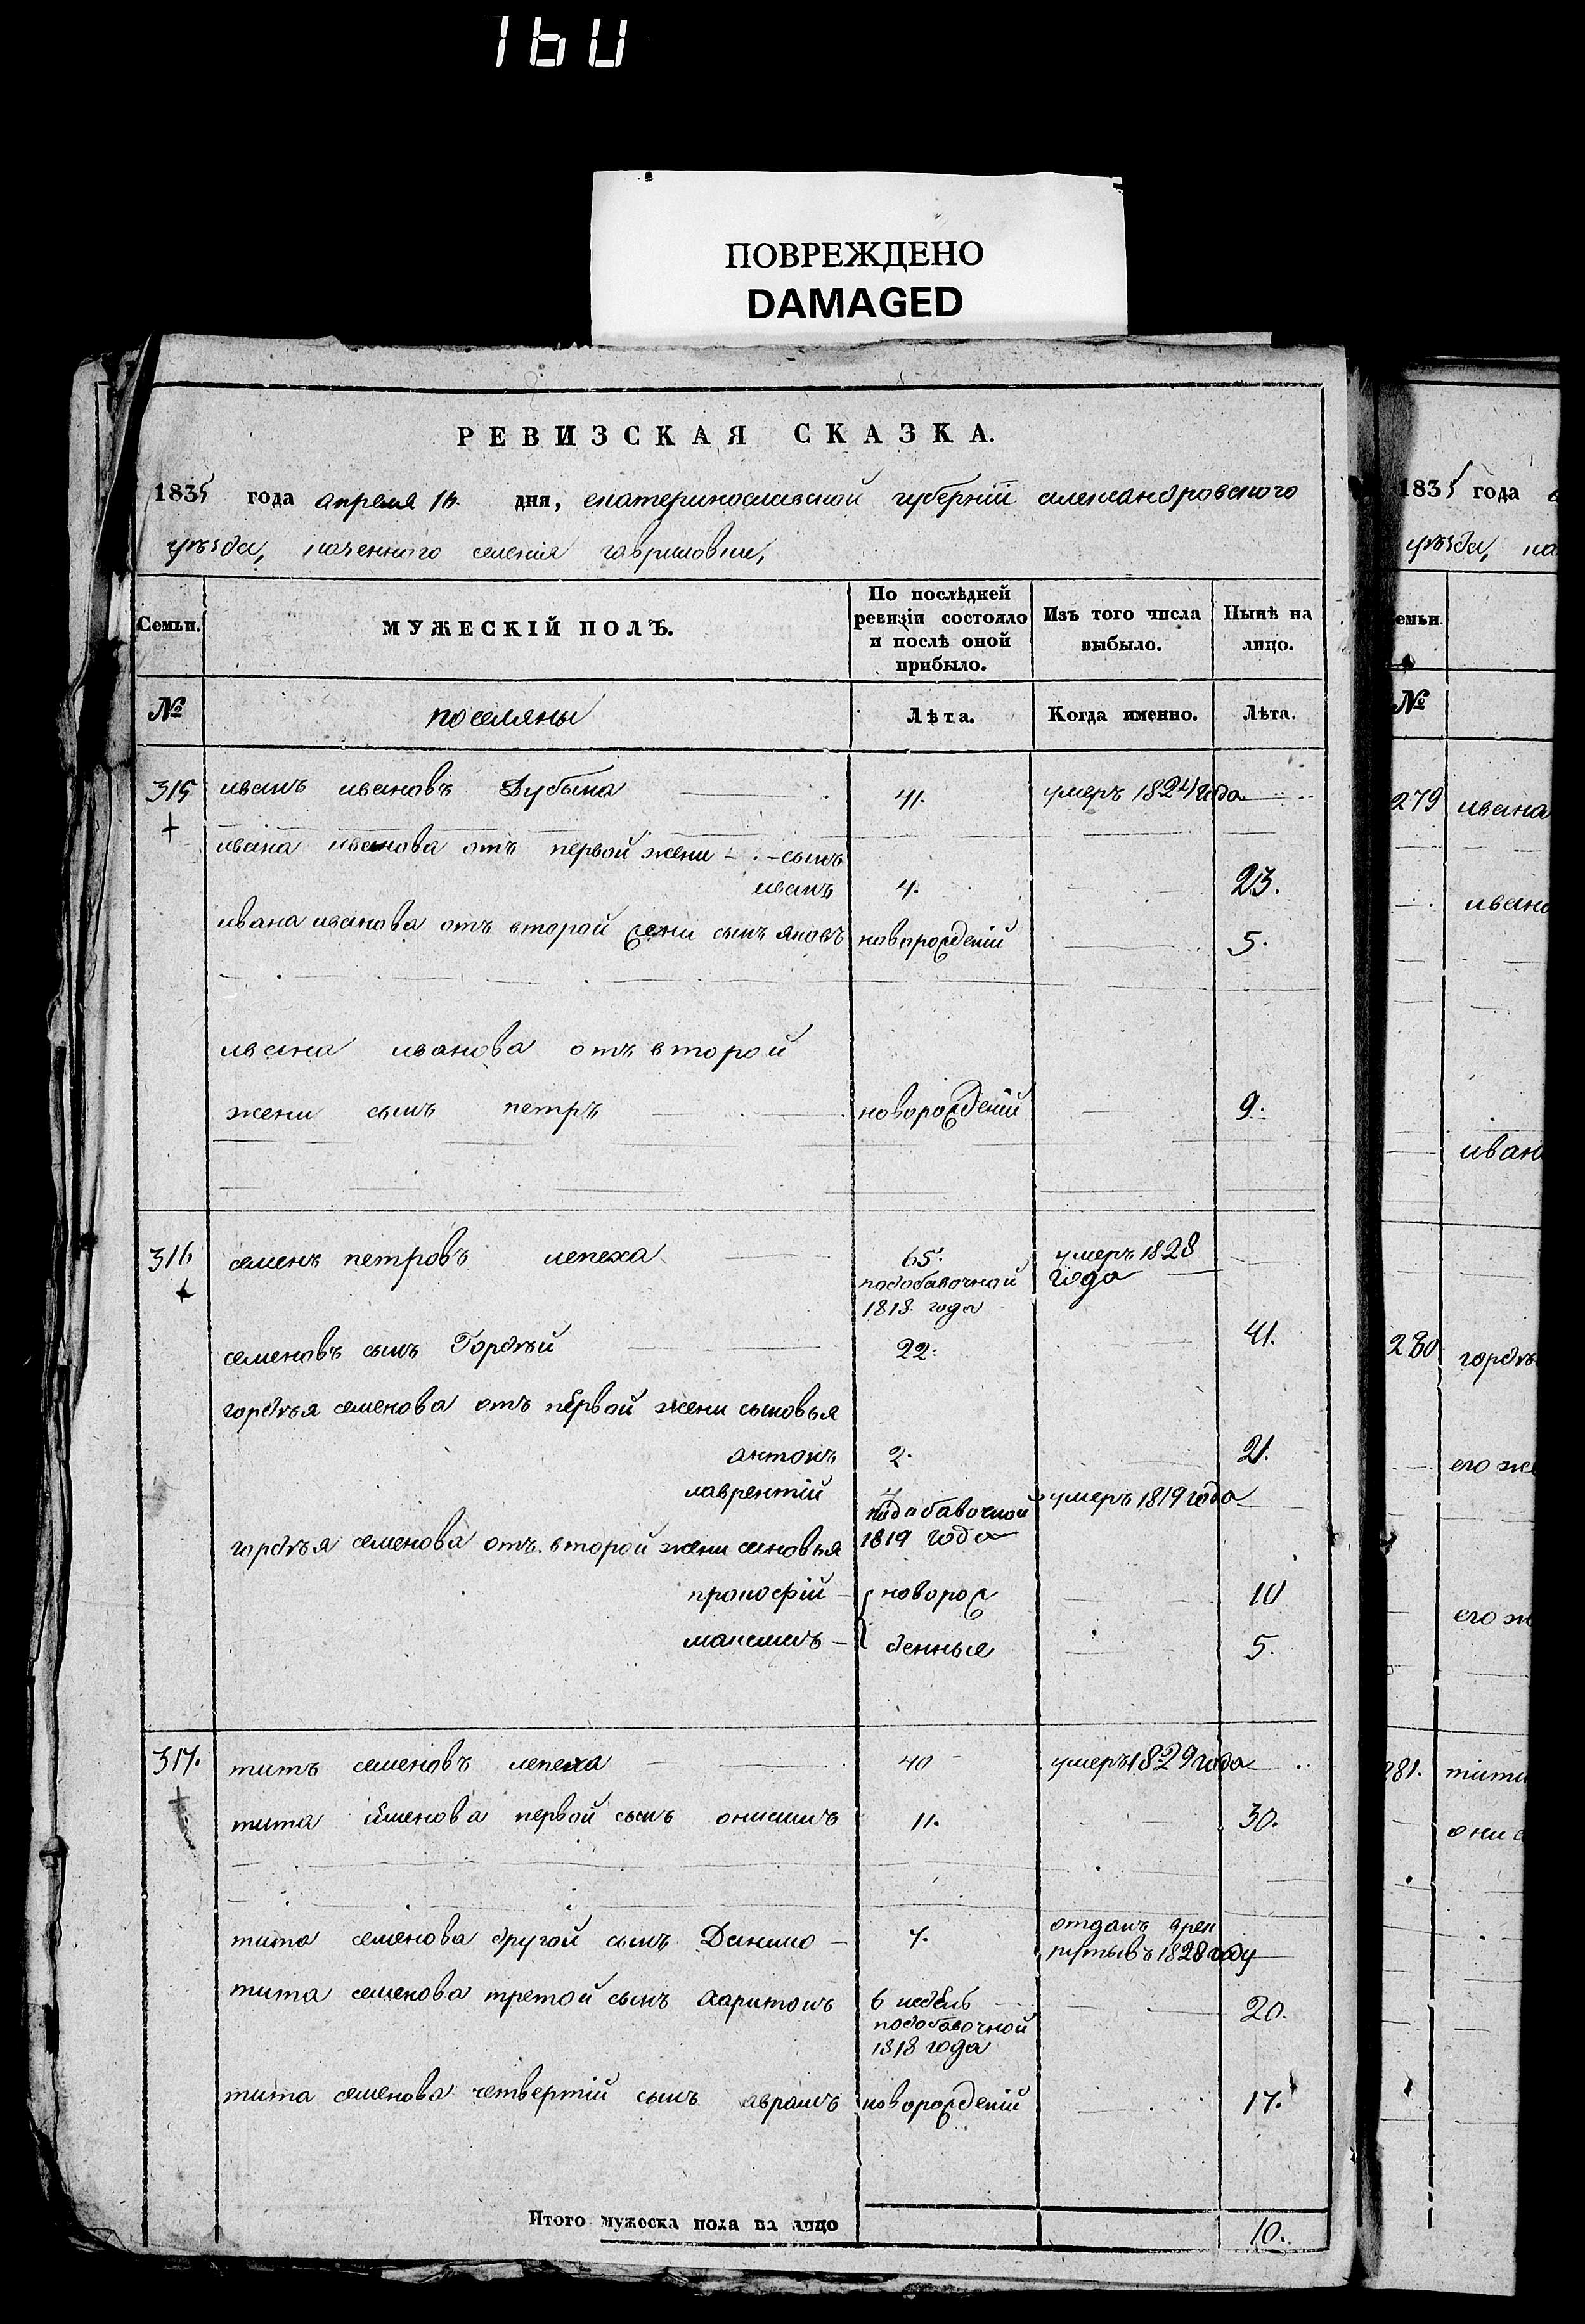 160
ПОВРЕЖДЕНО
DAMAGED
РЕВИЗСКАЯ СКАЗКА.
1835 года апреля 16 дня, екатеринославской губерніи александровского
уѣзда, казенного селенія гавриловки,
Семьи.
МУЖЕСКІЙ ПОЛЪ.
По послѣдней ревизіи состояло и послѣ оной прибыло.
Изъ того числа выбыло.
Нынѣ на лицо.
№
поселяны
Лѣта.
Когда именно.
Лѣта.
315 иванъ ивановъ Дубына 41. умеръ 1824 года
ивана иванова отъ первой жени сынъ
иванъ 4. 23.
ивана иванова отъ второй жени сынъ яковъ новорожденій 5.
ивана иванова отъ второй
жени сынъ петръ новорожденій 9.
316 семенъ петровъ лепеха 65. умеръ 1828
подобавочной года
1818 года
семеновъ сынъ Гордѣй 22. 41.
гордѣя семенова отъ первой жени сыновья
антонъ 2. 21.
лаврентій умеръ 1819 года
подобавочной
гордѣя семенова отъ второй жени синовья 1819 года
прокофій новорож 10
максимъ денные 5.
317. титъ семеновъ лепеха 40 умеръ 1829 года
тита семенова первой сынъ онисимъ 11. 30.
тита семенова другой сынъ Данило 7. отданъ врек
рутывъ 1828 году
тита семенова третой сынъ харитонъ 6 недель 20.
подобавочной
1818 года
тита семенова четвертій сынъ аврамъ новорожденій 17.
Итого мужеска пола на лицо 10.
1835 года
уѣзда, ка
емьи.
№
279 ивана
ивана
иван
280 гордѣ
его же
его ж
281. тита
они